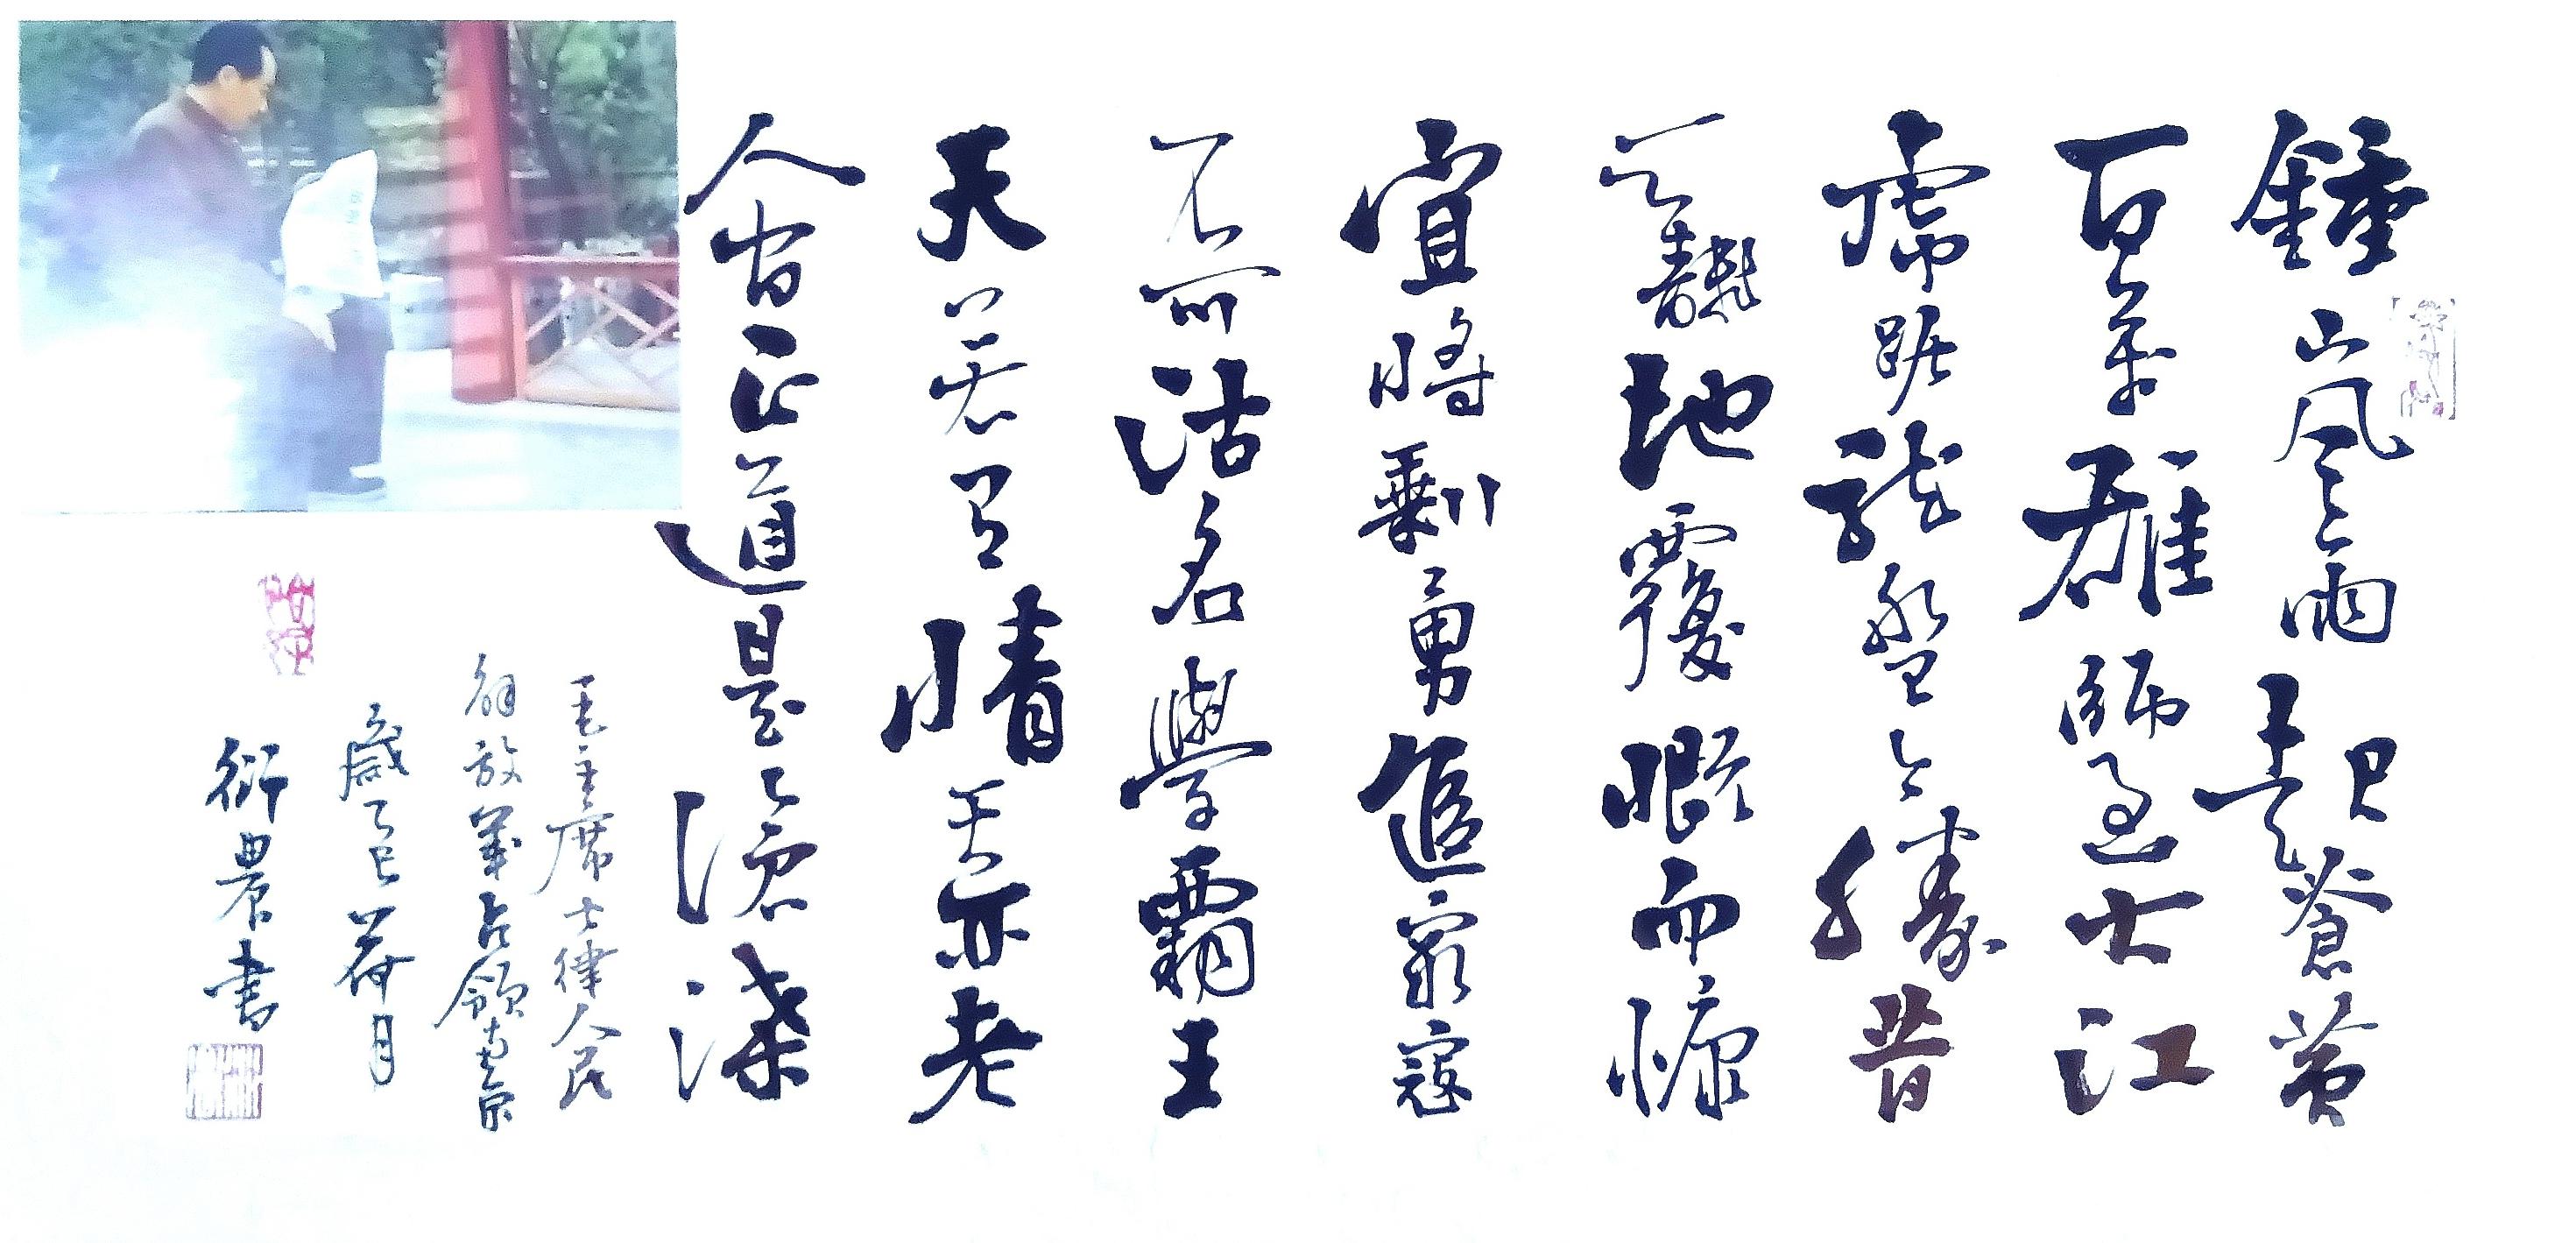 鍾山風雨起蒼黄
百萬雄師過大江
虎踞龍盤今勝昔
天翻地覆慨而慷
宜將剩勇追窮寇
不可沽名學霸王
天若有情天亦老
人間正道是滄桑
毛主席七律人民
解放軍占領南京
歲乙巳荷月
衍農書